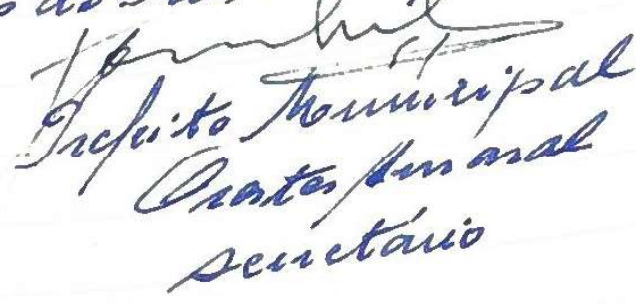 do
Prefeito Municipal
Orestes Amaral
secretário